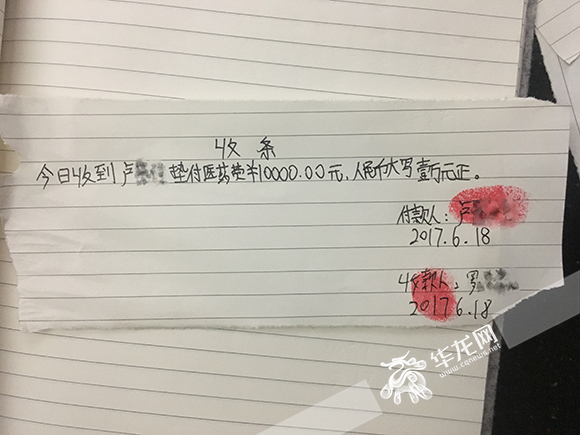 收条
今日收到卢垫付医药费¥10000.00元，人民币大写壹万元正。
付款人：卢
2017.6.18
收款人：罗
2017.6.18
华龙网
www.cqnews.net